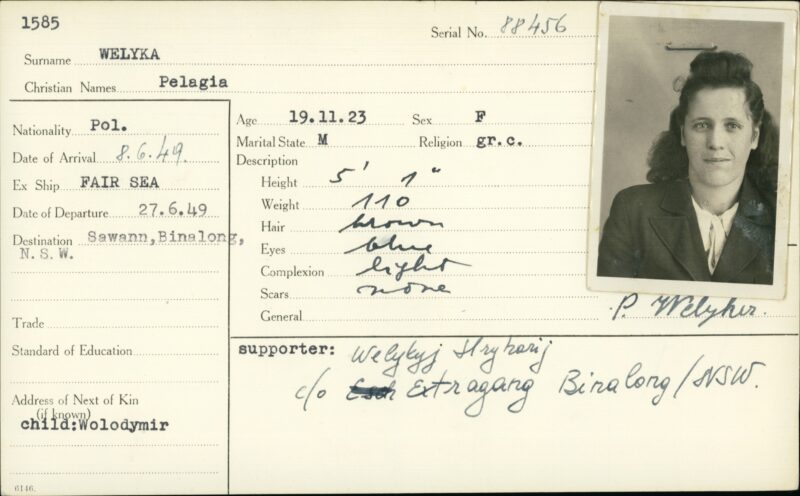 1585
Serial No. 88456
Surname WELYKA
Christian Names Pelagia
Nationality Pol.
Date of Arrival 8.6.49.
Ex Ship FAIR SEA
Date of Departure 27.6.49
Destination Sawann,Binalong,
N.S.W.
Trade
Standard of Education
Address of Next of Kin
(if known)
child:Wolodymir
6146.
Age 19.11.23 Sex F
Marital State M Religion gr.c.
Description
Height 5' 1"
Weight 110
Hair brown
Eyes blue
Complexion light
Scars none
General
P. Welyker.
supporter: Welykyj Hryhorij
c/o Extragang Binalong/NSW.